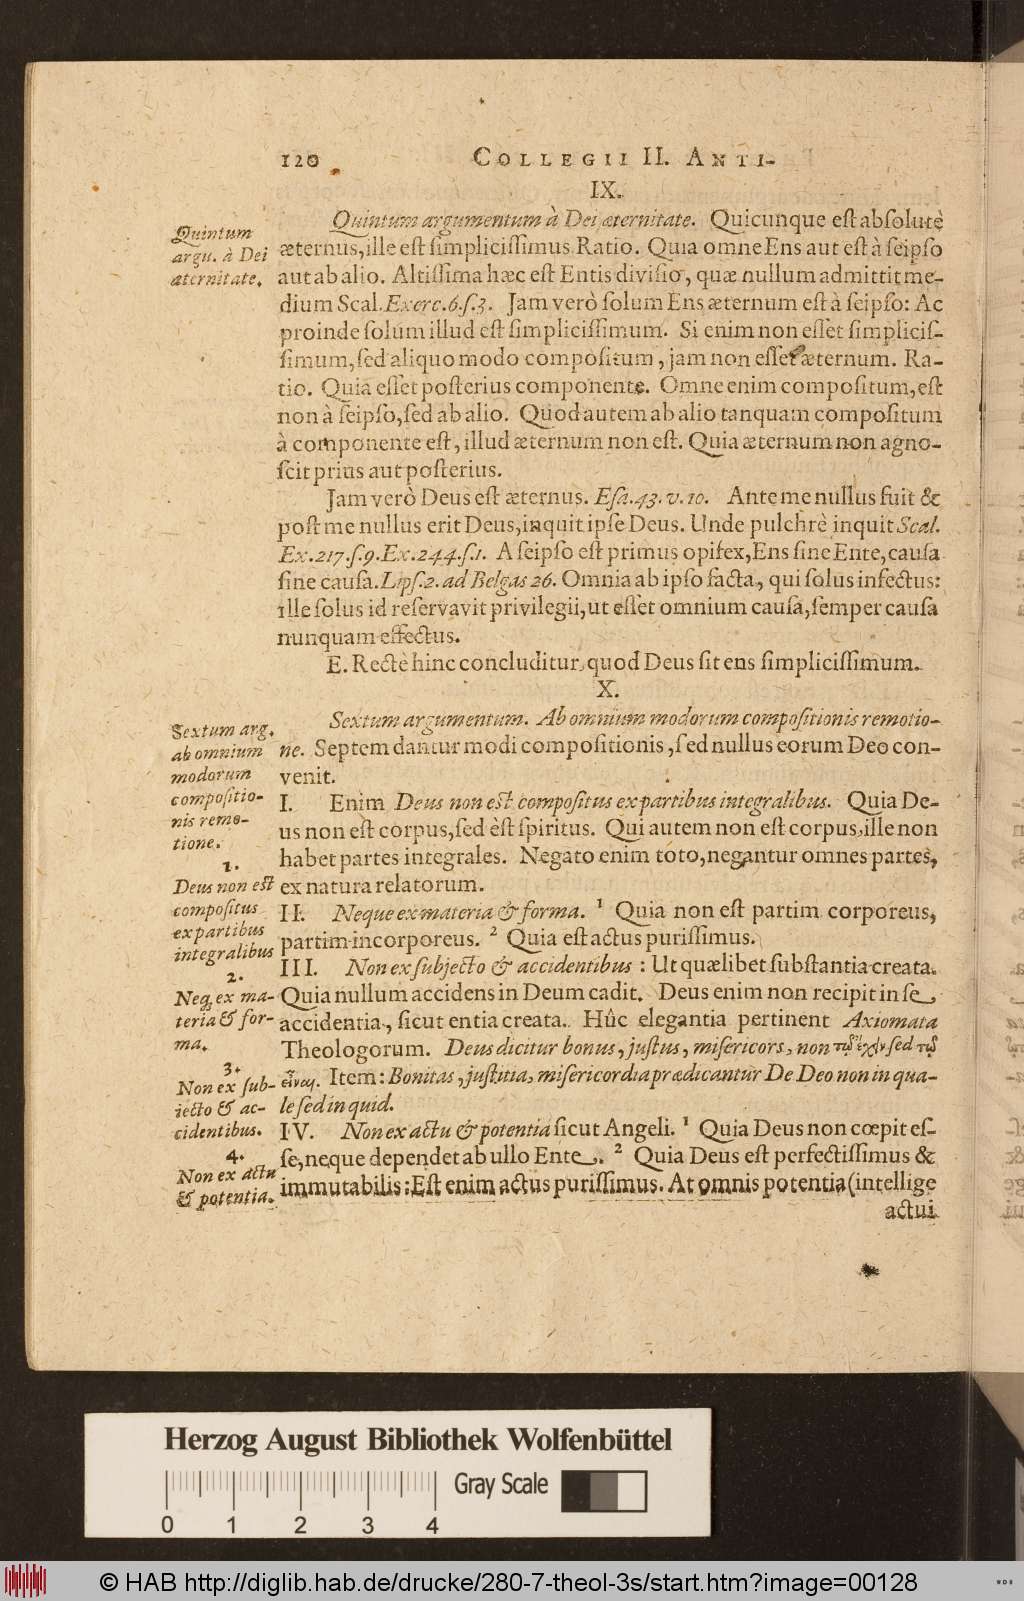 120 COLLEGII II. ANTI-
IX.
Quintum argumentum à Dei æternitate. Quicunque est absolutè
æternus, ille est simplicissimus Ratio. Quia omne Ens aut est à seipso
aut ab alio. Altissima hæc est Entis divisio, quæ nullum admittit me-
dium Scal. Exerc. 6. s. 3. Jam verò solum Ens æternum est à seipso: Ac
proinde solum illud est simplicissimum. Si enim non esset simplicis-
simum, sed aliquo modo compositum, jam non esset æternum. Ra-
tio. Quia esset posterius componente. Omne enim compositum, est
non à seipso, sed ab alio. Quod autem ab alio tanquam compositum
à componente est, illud æternum non est. Quia æternum non agno-
scit prius aut posterius.
Quintum
argu. à Dei
æternitate.
Jam verò Deus est æternus. Esa. 43. v. 10. Ante me nullus fuit &
post me nullus erit Deus, inquit ipse Deus. Unde pulchrè inquit Scal.
Ex. 217. s. 9. Ex. 244. s. 1. A seipso est primus opifex, Ens sine Ente, causa
sine causa. Lips. 2. ad Belgas 26. Omnia ab ipso facta, qui solus infectus:
ille solus id reservavit privilegii, ut esset omnium causa, semper causa
nunquam effectus.
E. Rectè hinc concluditur, quod Deus sit ens simplicissimum.
X.
Sextum argumentum. Ab omnium modorum compositionis remotio-
ne. Septem dantur modi compositionis, sed nullus eorum Deo con-
venit.
Sextum arg.
ab omnium
modorum
compositio-
nis remo-
tione.
I. Enim Deus non est compositus ex partibus integralibus. Quia De-
us non est corpus, sed èst spiritus. Qui autem non est corpus, ille non
habet partes integrales. Negato enim toto, negantur omnes partes,
ex natura relatorum.
1.
Deus non est
compositus
ex partibus
integralibus
II. Neque ex materia & forma. 1 Quia non est partim corporeus,
partim incorporeus. 2 Quia est actus purissimus.
III. Non ex subjecto & accidentibus: Ut quælibet substantia creata.
Quia nullum accidens in Deum cadit. Deus enim non recipit in se
accidentia, sicut entia creata. Hûc elegantia pertinent Axiomata
Theologorum. Deus dicitur bonus, justus, misericors, non τῷ ἔχῃν sed τῷ
εἶναι. Item: Bonitas, justitia, misericordia prædicantur De Deo non in qua-
le sed in quid.
2.
Neq; ex ma-
teria & for-
ma.
3.
Non ex sub-
iecto & ac-
cidentibus.
IV. Non ex actu & potentia sicut Angeli. 1 Quia Deus non cœpit es-
se, neque dependet ab ullo Ente. 2 Quia Deus est perfectissimus &
immutabilis: Est enim actus purissimus. At omnis potentia (intellige
actui
4.
Non ex actu
& potentia.
Herzog August Bibliothek Wolfenbüttel
Gray Scale
0 1 2 3 4
© HAB http://diglib.hab.de/drucke/280-7-theol-3s/start.htm?image=00128